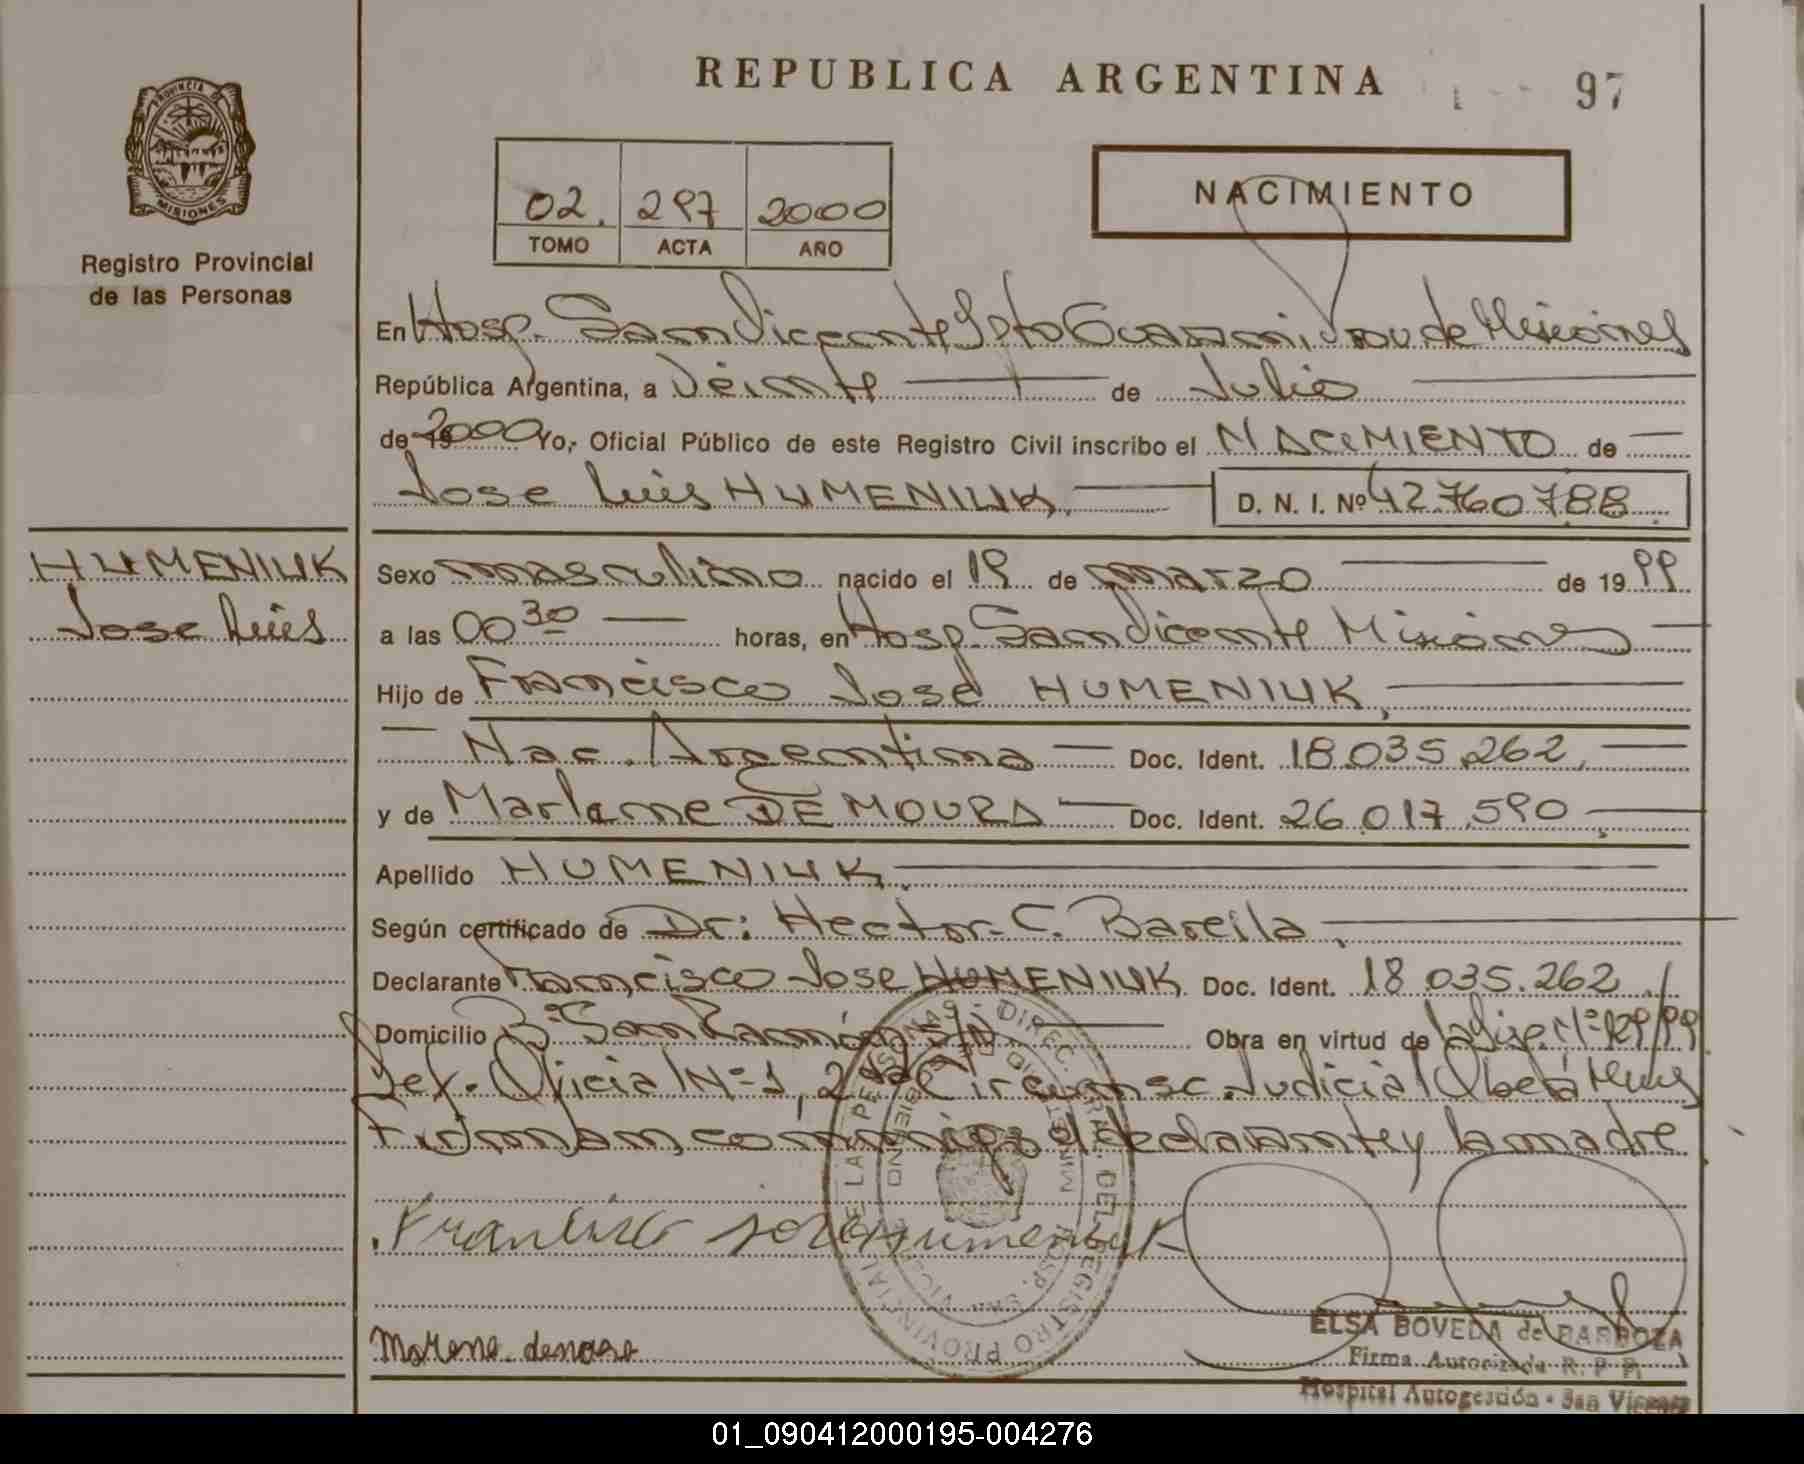 REPUBLICA ARGENTINA
97
PROVINCIA DE
MISIONES
Registro Provincial
de las Personas
02. 297 2000
TOMO ACTA AÑO
NACIMIENTO
En Hosp. San Vicente Dpto Guarani, Prov de Misiones
República Argentina, a Veinte de Julio
de 19 2000 Yo, Oficial Público de este Registro Civil inscribo el NACIMIENTO de
Jose Luis HUMENIUK, D. N. I. Nº 42.760.788
HUMENIUK
Jose Luis
Sexo masculino nacido el 19 de marzo de 19 99
a las 00 30 horas, en Hosp. San Vicente Misiones
Hijo de Francisco José HUMENIUK,
Nac. Argentina Doc. Ident. 18.035.262,
y de Marlene DE MOURA Doc. Ident. 26.017.590,
Apellido HUMENIUK,
Según certificado de Dr: Hector C. Bareila,
Declarante Francisco Jose HUMENIUK Doc. Ident. 18.035.262,
Domicilio Bº San Ramón s/n Obra en virtud de Nº 129/99
Def. Oficial Nº 1, 2 da Circunsc. Judicial Oberá Mnes
Firman conmigo el declarante y la madre
Francisco jose Humeniuk
ELSA BOVEDA de BARBOZA
Firma Autorizada R. P. P.
Hospital Autogestión - San Vicente
DIREC. GRAL. DEL REGISTRO PROVINCIAL DE LAS PERSONAS
01_090412000195-004276